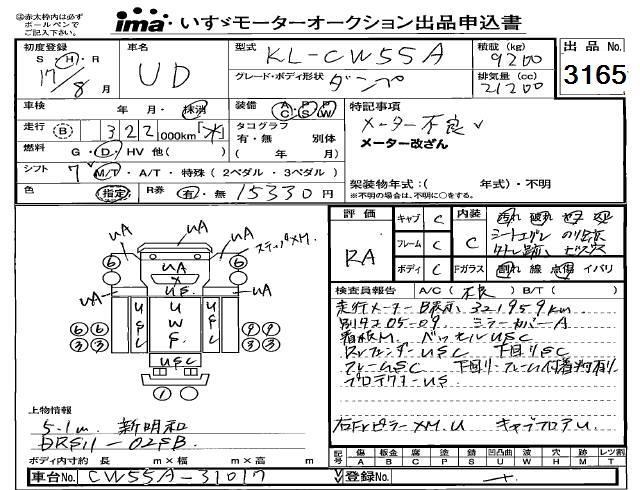 ㊟赤太枠内は必ず
ボールペンで
ご記入下さい。
ima いすゞモーターオークション出品申込書
初度登録
S・H・R
17/8月
車名
UD
型式 KL-CW55A
グレード・ボディ形状 ダンプ
積載(kg)
9200
排気量(cc)
21200
出品No.
3165
車検 年・月・抹消
走行 B 322 000km
燃料 G・D・HV 他( )
シフト 7 M/T・A/T・特殊(2ペダル・3ペダル)
色 指定 R券 有・無 15330円
装備 AC PS PW SW
タコグラフ
有・無 別体
( 年 月)
特記事項
メーター不良
メーター改ざん
架装物年式:( 年式)・不明
※不明の場合は、不明に○をする。
UA UA ステップXM.
6 UA 6
X
UA US UA
USC UWS USC
6 6 9 9
3 3 3 3
USC
1
上物情報
5.1m 新明和
DR511-02SB.
ボディ内寸約 長 m×幅 m×高 m
車台No. CW55A-31017
評価
RA
キャブ C
フレーム C
ボディ C
内装
C
シートエグレ のり跡
Fガラス 割れ 線 点傷 イバリ
検査員報告 A/C(不良) B/T( )
走行メーターB表示 321959km
別タコ05-09 ミラーカバーA
看板M. ベッセルUSC
RrフェンダーUSC 下回りSC
フレームUSC 下回り・フレーム付着物有り
プロテクターUS
右FrピラーXM.U キャブフロアU
記号 傷 板金 腐 塗 錆 凹凸曲 波 穴 跡 レツ割
A B C P S U W H M T
登録No.